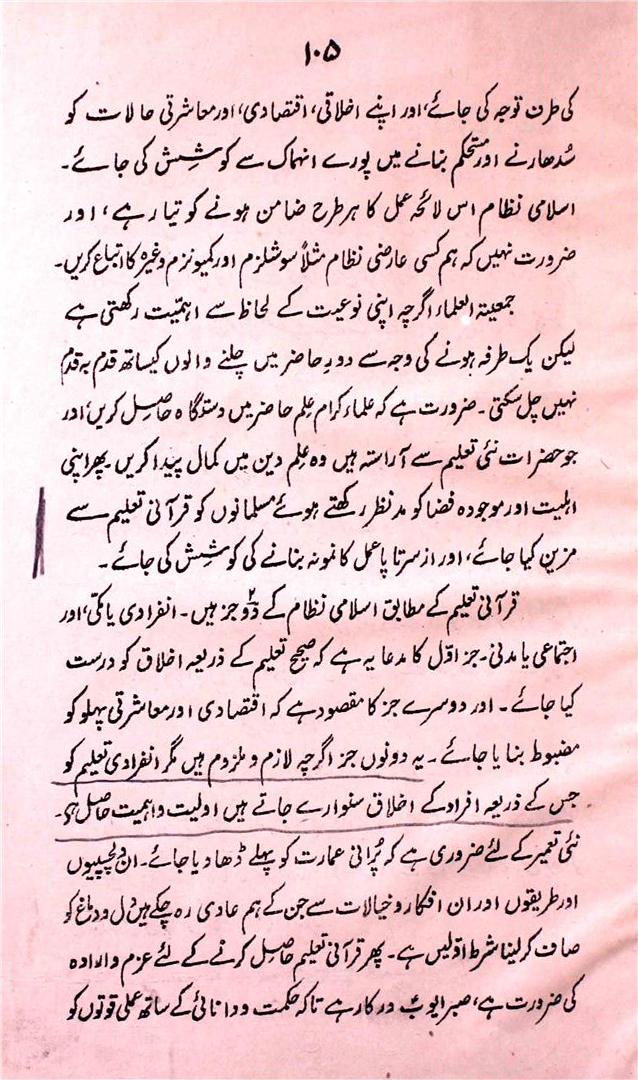 ۱۰۵
کی طرف توجہ کی جائے، اور اپنے اخلاقی، اقتصادی، اور معاشرتی حالات کو
سُدھارنے اور مستحکم بنانے میں پورے انہماک سے کوشِش کی جائے۔
اسلامی نظام اس لائحہ عمل کا ہر طرح ضامن ہونے کو تیار ہے، اور
ضرورت نہیں کہ ہم کسی عارضی نظام مثلاً سوشلزم اور کمیونزم وغیرہ کا اتباع کریں۔
جمعیتہ العلماء اگرچہ اپنی نوعیت کے لحاظ سے اہمیّت رکھتی ہے
لیکن یک طرفہ ہونے کی وجہ سے دورِ حاضر میں چلنے والوں کیساتھ قدم بہ قدم
نہیں چل سکتی۔ ضرورت ہے کہ علماء کرام علِم حاضر میں دستگاہ حاصِل کریں، اور
جو حضرات نئی تعلیم سے آراستہ ہیں وہ علِم دین میں کمال پیدا کریں۔ پھر اپنی
اہلیت اور موجودہ فضا کو مدنظر رکھتے ہوئے مسلمانوں کو قرآنی تعلیم سے
مزین کیا جائے، اور از سرتا پا عمل کا نمونہ بنانے کی کوشِش کی جائے۔
قرآنی تعلیم کے مطابق اسلامی نظام کے دو۲ جز ہیں۔ انفرادی یا مکّی، اور
اجتماعی یا مدنی۔ جز اوّل کا مدعا یہ ہے کہ صحیح تعلیم کے ذریعہ اخلاق کو درست
کیا جائے۔ اور دوسرے جز کا مقصود ہے کہ اقتصادی اور معاشرتی پہلو کو
مضبوط بنایا جائے۔ یہ دونوں جز اگرچہ لازم و ملزوم ہیں مگر انفرادی تعلیم کو
جس کے ذریعہ افراد کے اخلاق سنوارے جاتے ہیں اولیت و اہمیت حاصل ہی۔
نئی تعمیر کے لئے ضروری ہے کہ پُرانی عمارت کو پہلے ڈھا دیا جائے۔ ان دلچسپیوں
اور طریقوں اور ان افکار و خیالات سے جن کے ہم عادی رہ چکے ہیں دل و دماغ کو
صاف کر لینا شرط اوّلیں ہے۔ پھر قرآنی تعلیم حاصِل کرنے کے لئے عزم و ارادہ
کی ضرورت ہے، صبر ایوبؑ درکار ہے تاکہ حکمت و دانائی کے ساتھ عملی قوتوں کو